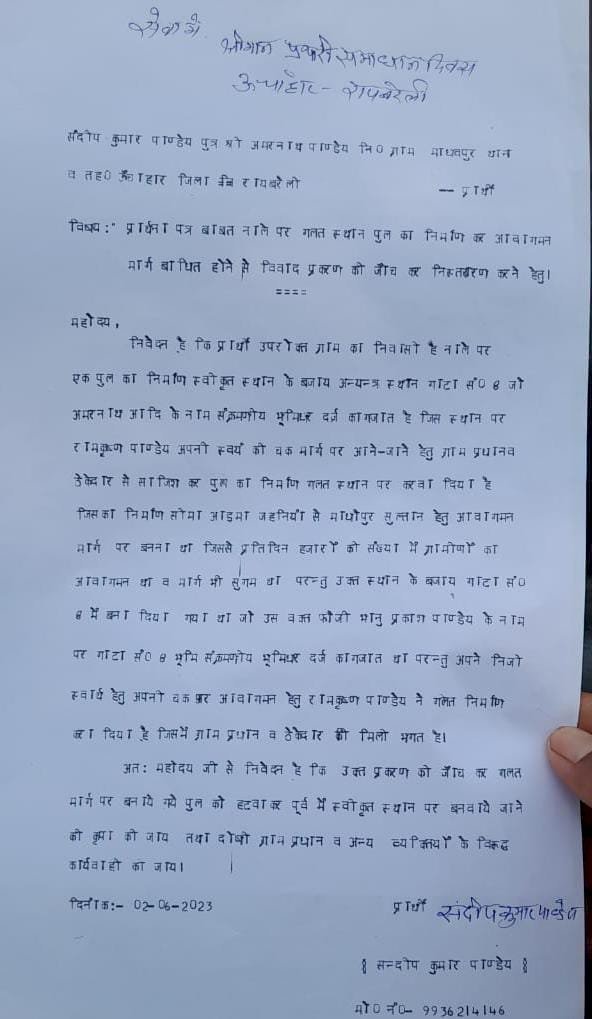 सेवा में,
श्रीमान प्रभारी समाधान दिवस
ऊंचाहार - रायबरेली
संदीप कुमार पाण्डेय पुत्र श्री अमरनाथ पाण्डेय नि0 ग्राम माधवपुर थाना
व तह0 ऊंचाहार जिला रायबरेली -- प्रार्थी
विषय:- प्रार्थना पत्र बाबत नाले पर गलत स्थान पुल का निर्माण कर आवागमन
मार्ग बाधित होने से विवाद प्रकरण की जाँच कर निस्तारण करने हेतु।
====
महोदय,
निवेदन है कि प्रार्थी उपरोक्त ग्राम का निवासी है नाले पर
एक पुल का निर्माण स्वीकृत स्थान के बजाय अन्यन्त्र स्थान गाटा सं0 8 जो
अमरनाथ आदि के नाम संक्रमणीय भूमिधर दर्ज कागजात है जिस स्थान पर
रामकृष्ण पाण्डेय अपनी स्वयं की चक मार्ग पर आने-जाने हेतु ग्राम प्रधान व
ठेकेदार से साजिश कर पुल का निर्माण गलत स्थान पर करवा दिया है
जिसका निर्माण सीमा आइमा जहनियां से माधोपुर सुल्तान हेतु आवागमन
मार्ग पर बनना था जिससे प्रतिदिन हजारों की संख्या में ग्रामीणों का
आवागमन था व मार्ग भी सुगम था परन्तु उक्त स्थान के बजाय गाटा सं0
8 में बना दिया गया था जो उस वक्त फौजी भानु प्रकाश पाण्डेय के नाम
पर गाटा सं0 8 भूमि संक्रमणीय भूमिधर दर्ज कागजात था परन्तु अपने निजी
स्वार्थ हेतु अपनी चक पर आवागमन हेतु रामकृष्ण पाण्डेय ने गलत निर्माण
करा दिया है जिसमें ग्राम प्रधान व ठेकेदार की मिली भगत है।
अत: महोदय जी से निवेदन है कि उक्त प्रकरण की जाँच कर गलत
मार्ग पर बनाये गये पुल को हटवाकर पूर्व में स्वीकृत स्थान पर बनवाये जाने
की कृपा की जाय तथा दोषी ग्राम प्रधान व अन्य व्यक्तियों के विरूद्ध
कार्यवाही की जाय।
दिनांक:- 02-06-2023 प्रार्थी संदीप कुमार पाण्डेय
( सन्दीप कुमार पाण्डेय )
मो0 नं0- 9936214146